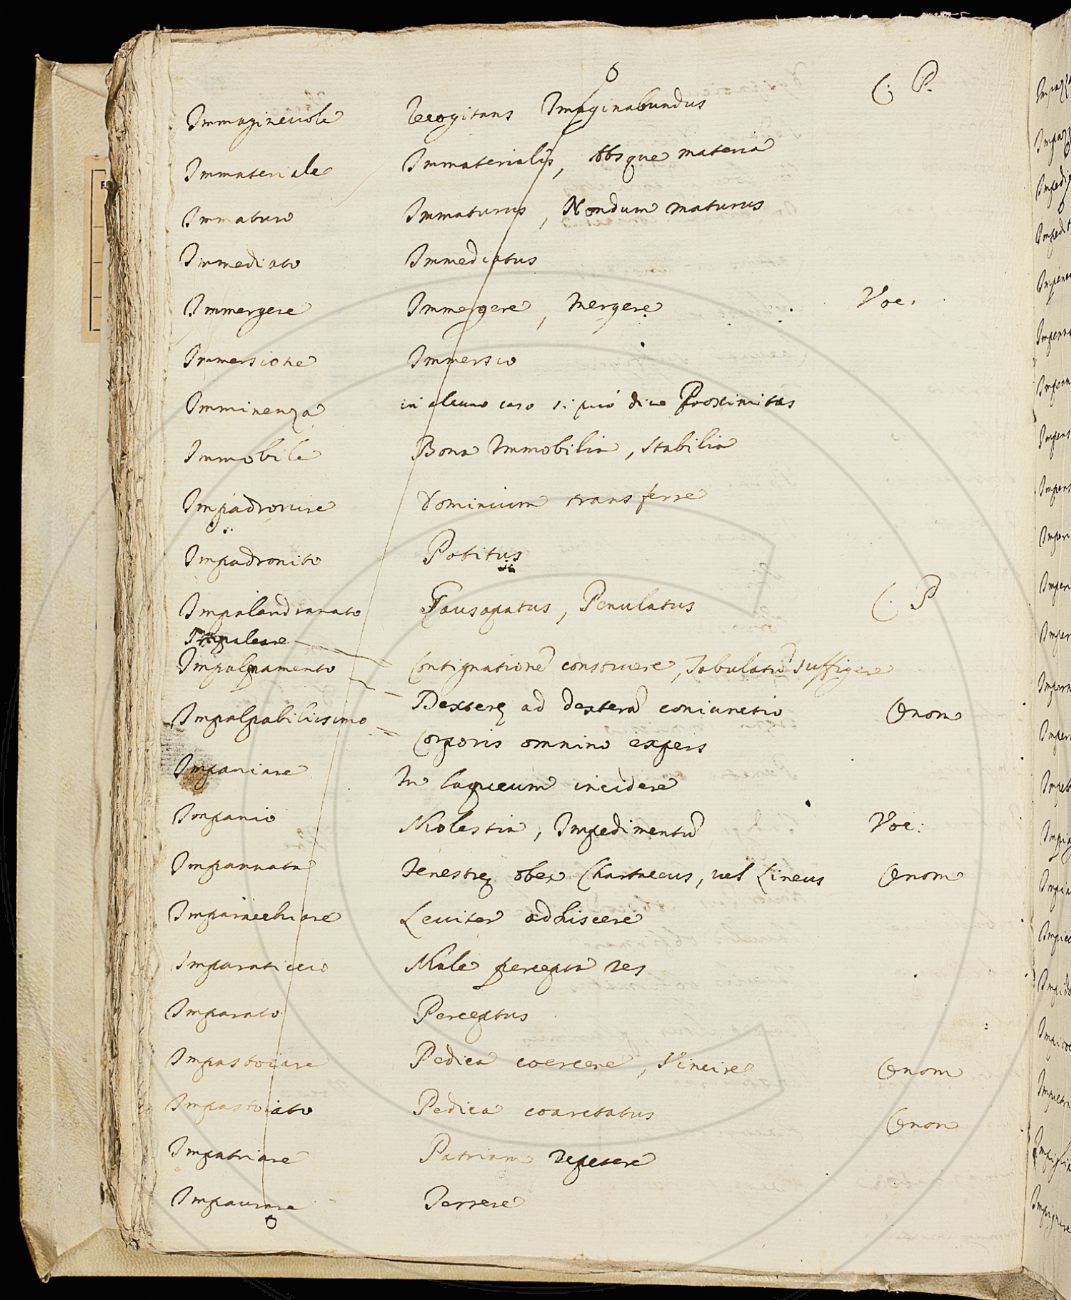 Immaginevole Recogitans Imaginabundus C. P.
Immateriale Immaterialis, Absque materia
Immaturo Immaturus, Nondum maturus
Immediato Immediatus
Immergere Immergere, Mergere Voc.
Immersione Immersio
Imminenza in alcuno caso si può dire Proximitas
Immobile Bona Immobilia, Stabilia
Impadronire Dominium transferre
Impadronito Potitus
Impalandranato Gausapatus, Penulatus C. P
Impalcare
Impalmamento Contignatione construere, Tabulatū suffigere
Dexterę ad dexterā coniunctio Onom
Impalpabilissimo
Corporis omnino expers
Impaniare In laqueum incidere
Impanio Molestia, Impedimentū Voc.
Impannata Fenestrę obex Chartaceus, vel Lineus Onom
Imparacchiare Leviter adhiscere
Imparaticcio Male percepta res
Imparato Perceptus
Impastoiare Pedica coercere, Vincire Onom
Impastoiato Pedica coarctatus Onom
Impatriare Patriam repetere
Impaurare Terrere